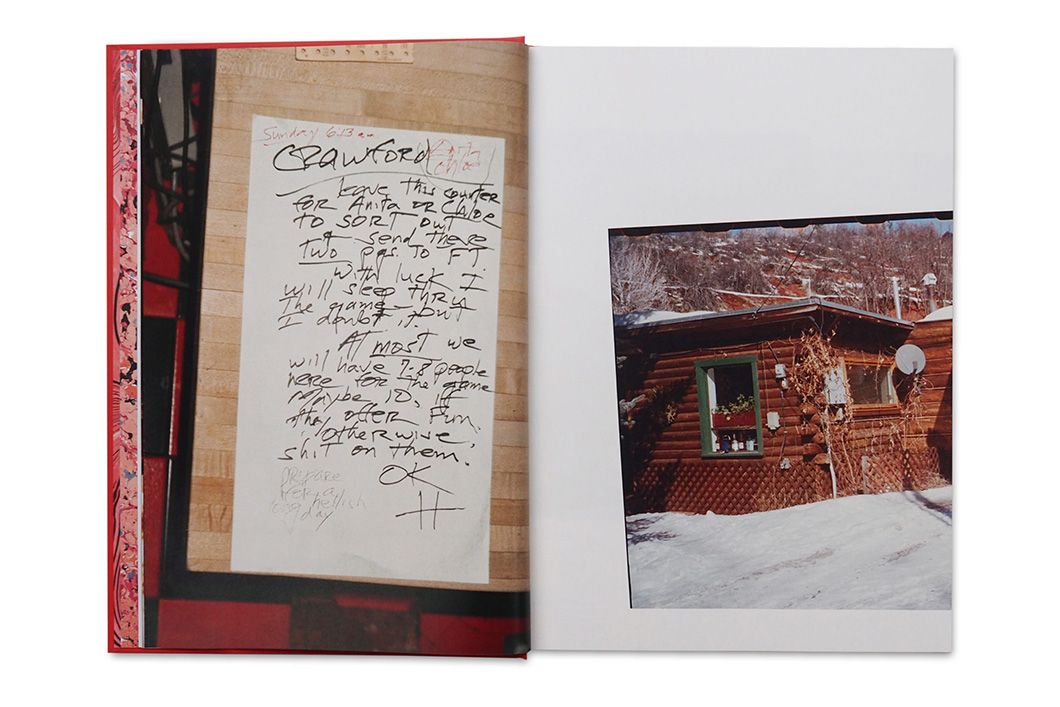 Sunday 6:13 am
CRAWFORD
Anita
Chloe
leave this counter
for Anita or Chloe
to sort out
+ send these
two pgs. to FT
With luck I
will sleep thru
the game — but
I doubt it.
At most we
will have 7-8 people
here for the game
Maybe 10, if
they offer Fun.
Otherwise,
shit on them.
OK
H
PREPARE
for a
long hellish
day